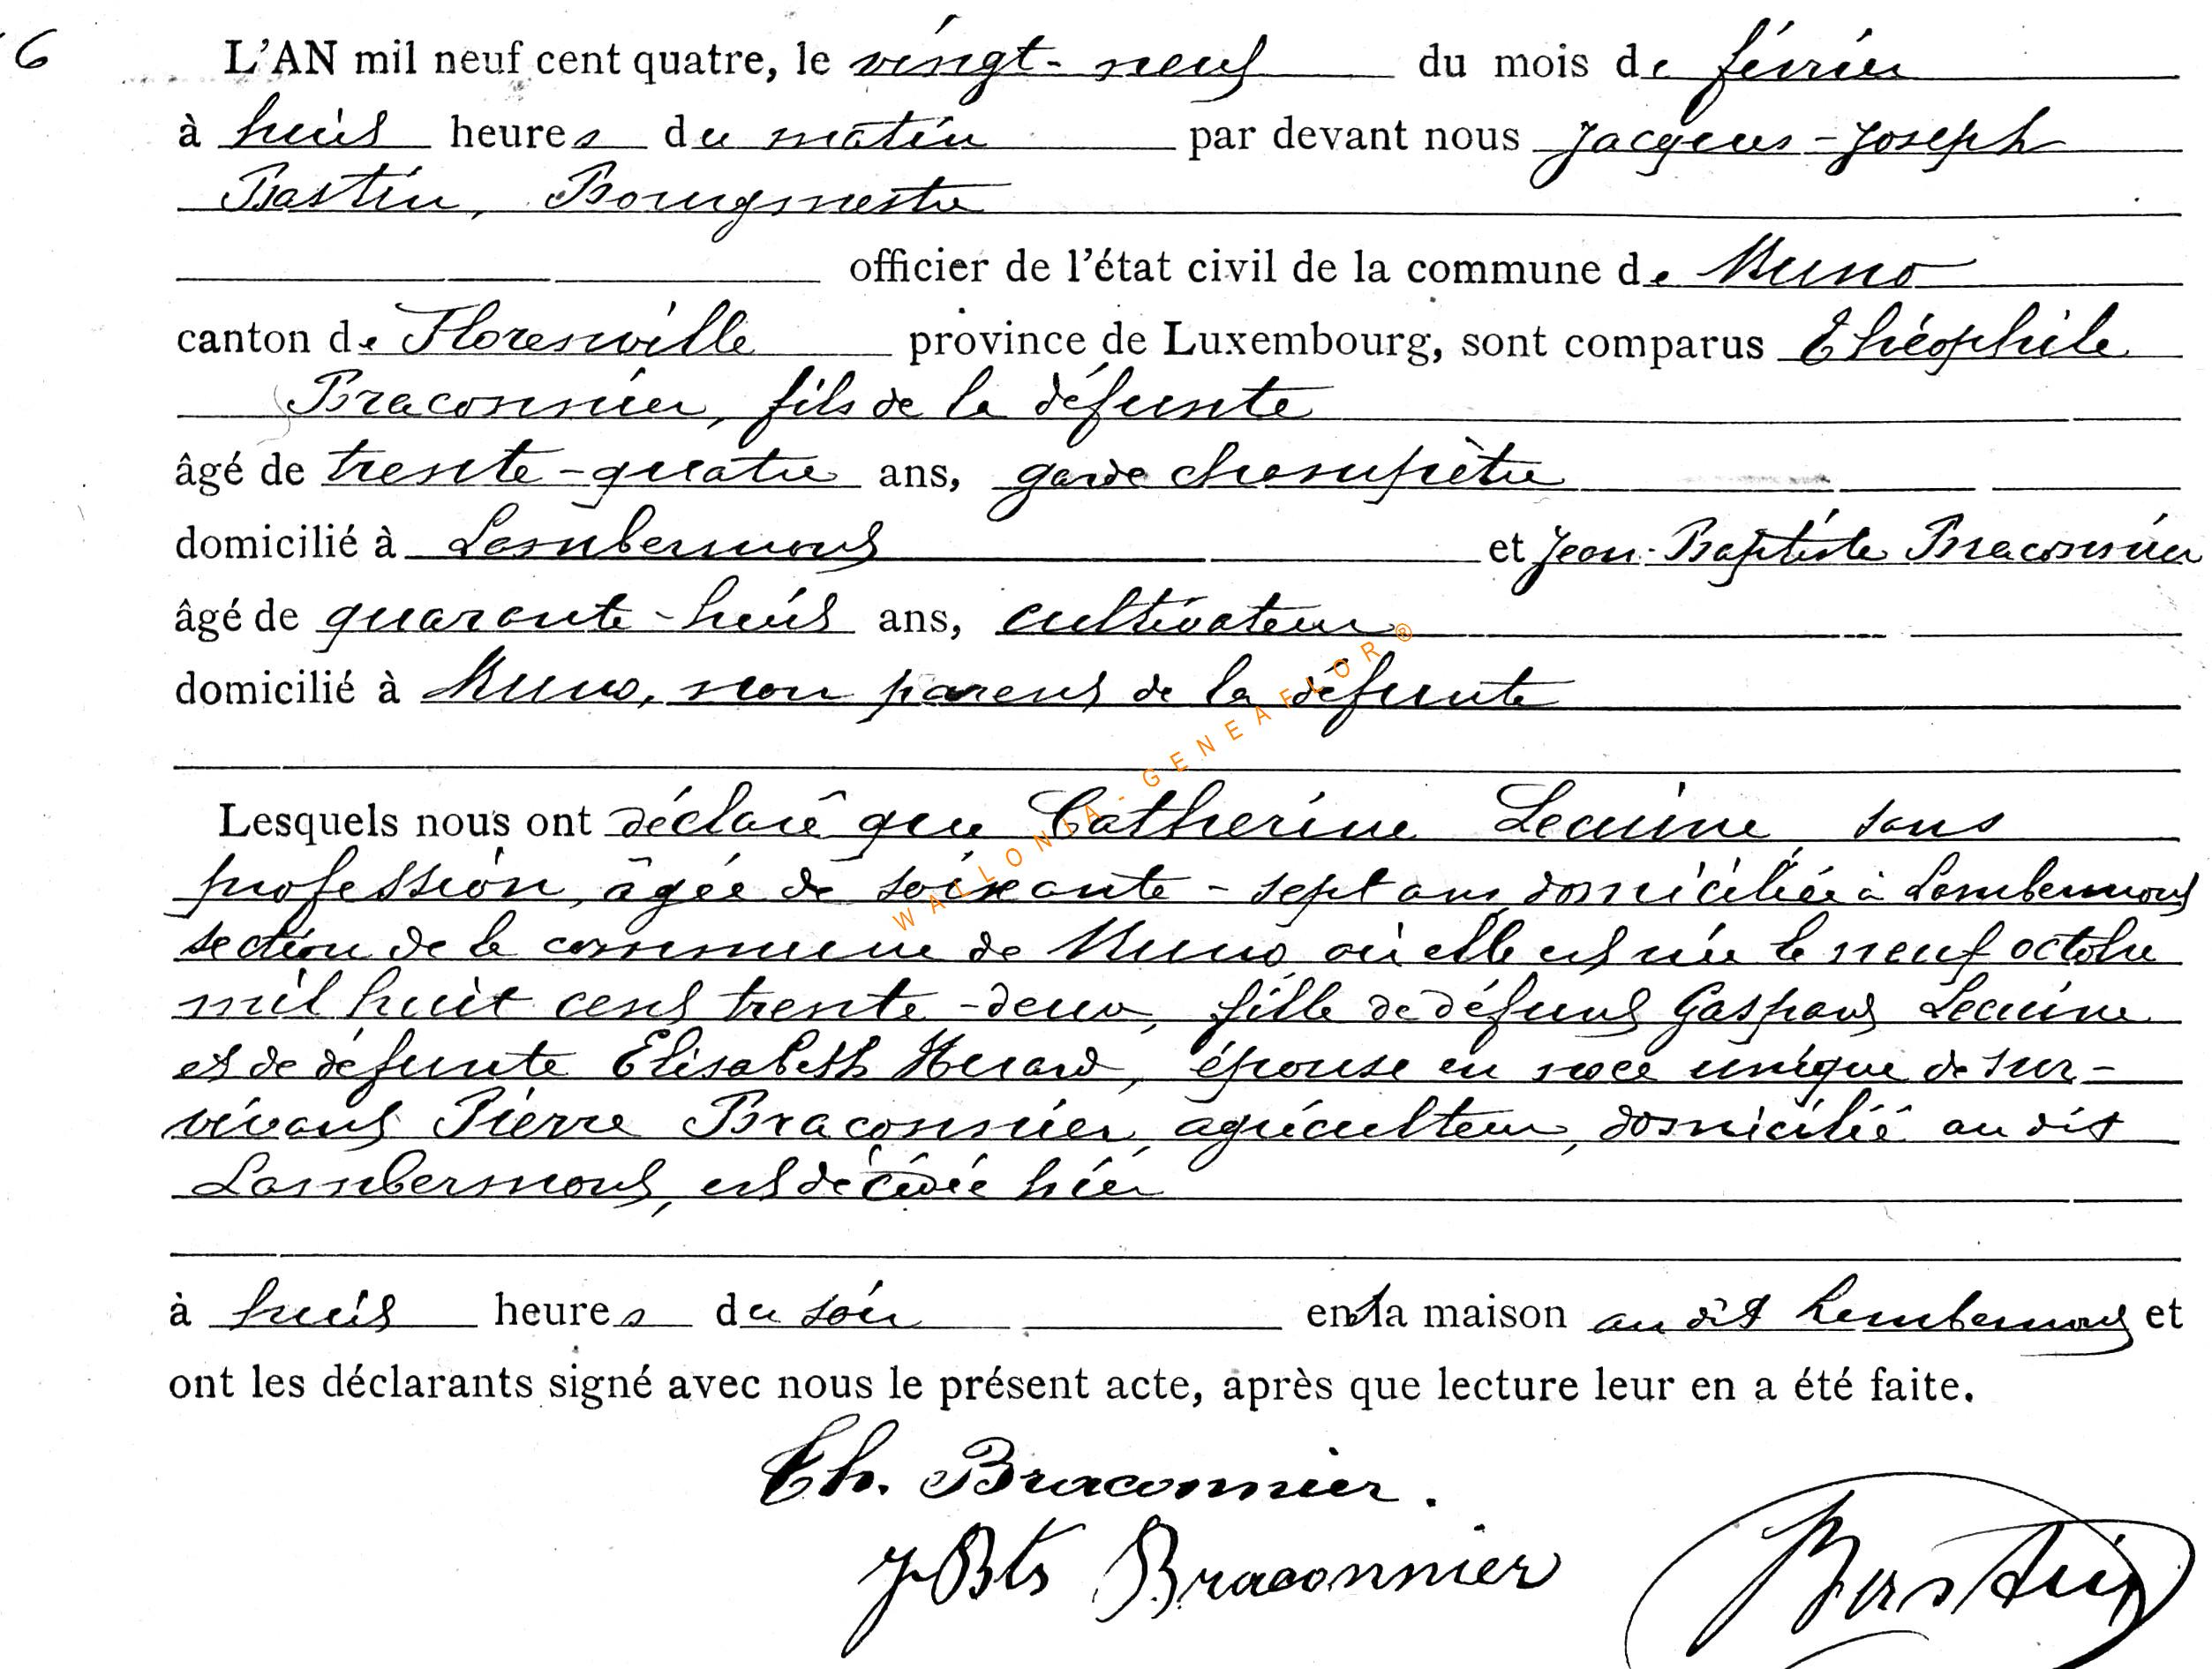 6
L'AN mil neuf cent quatre, le vingt-neuf du mois de février
à huit heures du matin par devant nous Jacques-Joseph
Bastin, Bourgmestre
officier de l'état civil de la commune de Muno
canton de Florenville province de Luxembourg, sont comparus Théophile
Braconnier, fils de la défunte
âgé de trente-quatre ans, garde champêtre
domicilié à Lambermont et Jean-Baptiste Braconnier
âgé de quarante-huit ans, cultivateur
domicilié à Muno, non parent de la défunte
Lesquels nous ont déclaré que Catherine Lecuine sans
profession, âgée de soixante-sept ans domiciliée à Lambermont
section de la commune de Muno où elle est née le neuf octobre
mil huit cent trente-deux, fille de défunt Gaspard Lecuine
et de défunte Elisabeth Huard, épouse en noce unique de sur-
vivant Pierre Braconnier, agriculteur, domicilié au dit
Lambermont, est décédée hier
à huit heures du soir en sa maison au dit Lambermont et
ont les déclarants signé avec nous le présent acte, après que lecture leur en a été faite.
Th. Braconnier.
J Bte Braconnier
Bastin
WALLONIA-GENEAFLOR®